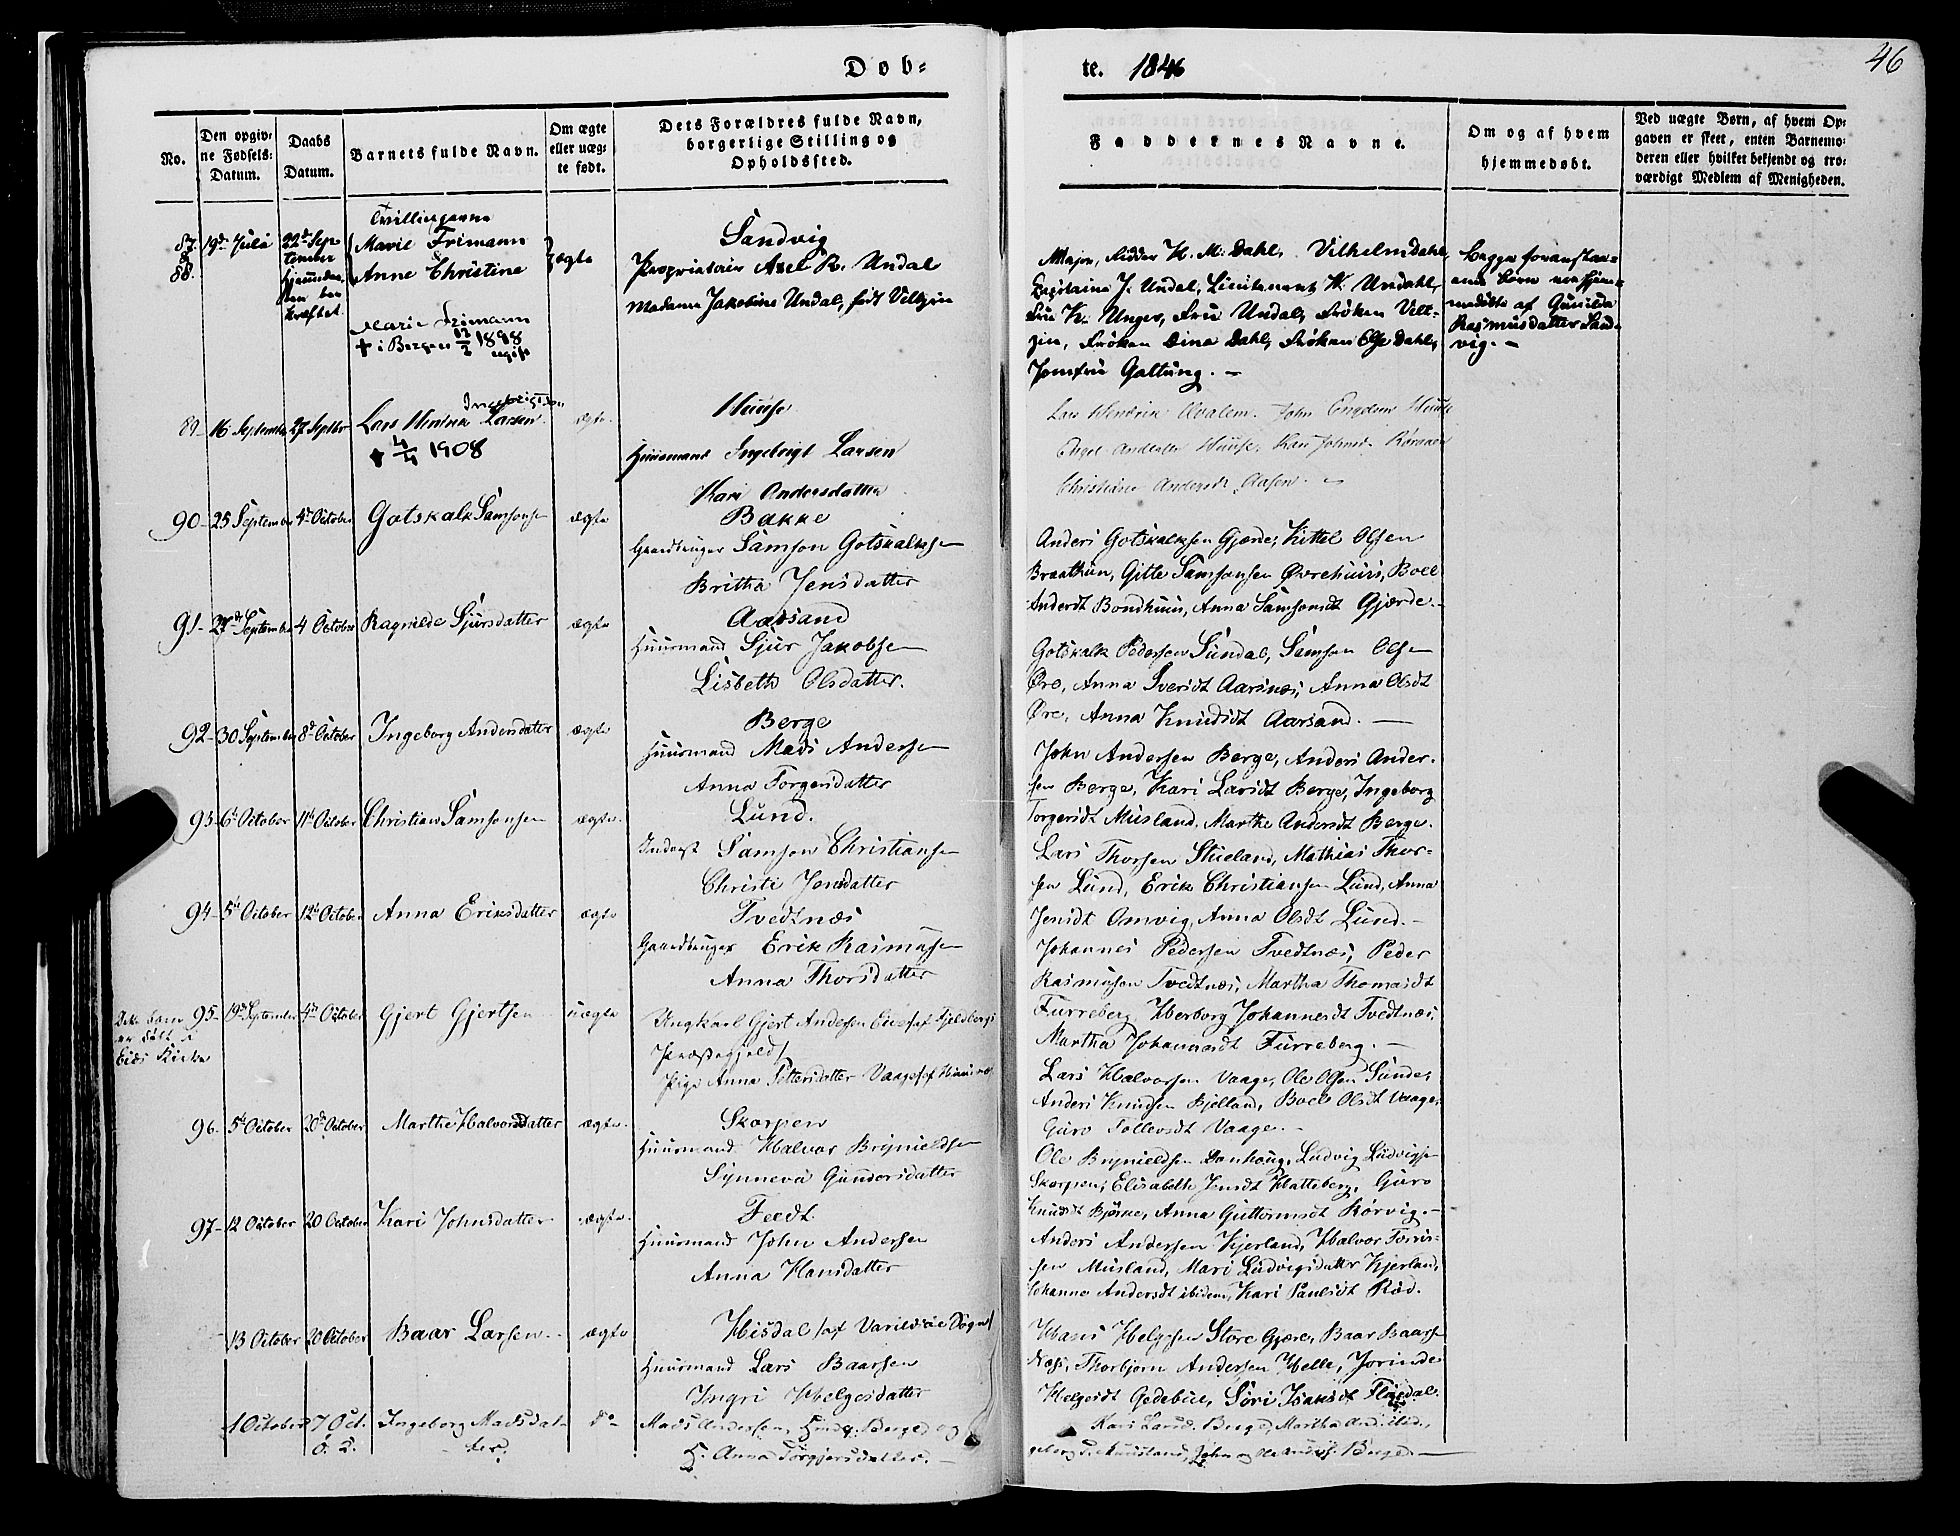 46
Døb-
te. 1846
No.
Den opgiv-
ne Fødsels-
Datum.
Daabs
Datum.
Barnets fulde Navn.
Om ægte
eller uæg-
te født.
Dets Forældres fulde Navn,
borgerlige Stilling og
Opholdssted.
Faddernes Navne.
Om og af hvem
hjemmedøbt.
Ved uægte Børn, af hvem Op-
gaven er skeet, enten Barnemo-
deren eller hvilket bekjendt og tro-
værdigt Medlem af Menigheden.
87. & 88. 19de Julii 22de Sep
tember
hjemmedaa-
ben be
kræftet
Tvillingerne
Marie Frimann
&
Anne Christine
ægte
Marie Frimann
† i Bergen 12/2 1898
ugift
Sandvig
Proprietair Axel R. Undal
Madame Jakobine Undal, født Veltzin
Major, Ridder H. M. Dahl, Vilhelmdahl,
Capitaine J. Undal, Lieutenant K. Undahl,
Frue K. Unger, Frue Undal, Frøken Velt-
zin, Frøken Dina Dahl, Frøken Else Dahl,
Jomfru Galtung. —
Begge foranstaa-
ende Børn ere hjem-
medøbte af Gunilda
Rasmusdatter Sand-
vig. —
89- 16 September 27 Septbr Lars Larsen ægte
Ingebrigtsen
† 4/4 1908
Huuse
Huusmand Ingebrigt Larsen
Kari Andersdatter
Lars Hendrik John Engelsen Huuse
Engel Andersen Huuse, Kari Johnsd.
Christiane Andersdt Aasen. —
90- 25 September 4de October Gotskalk Samsonsen ægte
Bakke
Gaardbruger Samson Gotskalksen
Britha Jensdatter
Anders Gotskalksen Gjærde, Kittel Olsen
Braathun, Gitle Samsonsen Øvrehuus, Boel
Andersdt Bondhuus, Anna Samsonsdt Gjærde.
91- 27de September 4 October Ragnilde Sjursdatter ægte
Aarsand
Huusmand Sjur Jakobsen
Lisbeth Olsdatter.
Gotskalk Pedersen Sundal, Samson Olsen
Øre, Anna Sversdt Aarsnæs, Anna Olsdt
Øre, Anna Knudsdt Aarsand. —
92- 30 September 8de October Ingeborg Andersdatter ægte
Berge
Huusmand Mads Andersen
Anna Torgersdatter
John Andersen Berge, Anders Ander-
sen Berge, Kari Larsdt Berge, Ingeborg
Torgersdt Musland, Marthe Andersdt Berge.
93- 6te October 11te October Christian Samsonsen ægte.
Lund.
Inderst Samson Christiansen
Christi Jensdatter
Lars Thorsen Stueland, Mathias Thor-
sen Lund, Erik Christiansen Lund, Anna
Jensdt Omvig, Anna Olsdt Lund. —
94- 5te October 12te October Anna Eriksdatter ægte
Tvedtnæs
Gaardbruger Erik Rasmussen
Anna Thorsdatter
Johannes Pedersen Tvedtnæs, Peder
Rasmussen Tvedtnæs, Martha Thomasdt
Furreberg, Herborg Johannesdt Tvedtnæs,
Martha Johannesdt Furreberg. —
Dette barn
er døbt i
Eids Kirke
95- 19de September 4de October Gjert Gjertsen uægte
Ungkarl Gjert Andersen Eide / af Fjeldbergs
Præstegjeld /
Pige Anna Pettersdatter Vaage / af
Lars Halvorsen Vaage, Ole Olsen Sunde,
Anders Knudsen Kjelland, Boel Olsdt Vaage,
Guro Tollevsdt Vaage. —
96. 5te October 20de October Marthe Halvorsdatter ægte.
Skorpen
Huusmand Halvor Brynieldsen
Synneva Gundersdatter
Ole Brynieldsen Ludvig Ludvigsen
Skorpen, Elisabeth Jensdt Hatteberg, Guro
Knudsdt Bjørke, Anna Guttormsdt Rørvig. —
97- 12 October 20 October Kari Johnsdatter ægte.
Feedt.
Huusmand John Andersen
Anna Hansdatter
Anders Andersen Kjerland, Halvor Torris-
sen Musland, Mari Ludvigsdatter Kjerland,
Johanne Andersdt ibidem, Kari Paulsdt Røed.
13 October 20 October Baar Larsen. ægte
Hisdal / af Varildsøe Sogn /
Huusmand Lars Baarsen
Ingri Helgesdatter
Hans Helgesen Store Gjære, Baar Baarsen
Næss, Thorbjørn Andersen Helle, Jorinde
Helgesdt Gedebue, Siri Isaksdt Flugedal.
1 October 7 Oct.
o: s:
Ingeborg Madsdat-
ter
do
Mads Andersen, Berge og
H. Anna Torgjersdatter. —
Kari Larsd. Berge, Martha And. ibid.,
John og Ole Anders. Berge. —